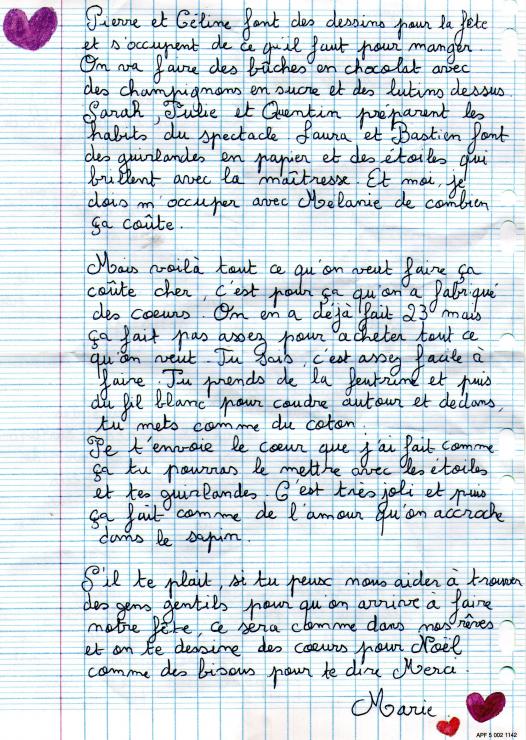 Pierre et Céline font des dessins pour la fête
et s'occupent de ce qu'il faut pour manger.
On va faire des bûches en chocolat avec
des champignons en sucre et des lutins dessus.
Sarah, Julie et Quentin préparent les
habits du spectacle. Laura et Bastien font
des guirlandes en papier et des étoiles qui
brillent avec la maîtresse. Et moi, je
dois m'occuper avec Mélanie de combien
ça coûte.
Mais voilà tout ce qu'on veut faire ça
coûte cher, c'est pour ça qu'on a fabriqué
des coeurs. On en a déjà fait 23 mais
ça fait pas assez pour acheter tout ce
qu'on veut. Tu sais, c'est assez facile à
faire. Tu prends de la feutrine et puis
du fil blanc pour coudre autour et dedans,
tu mets comme du coton.
Je t'envoie le coeur que j'ai fait comme
ça tu pourras le mettre avec les étoiles
et tes guirlandes. C'est très joli et puis
ça fait comme de l'amour qu'on accroche
dans le sapin.
S'il te plait, si tu peux nous aider à trouver
des gens gentils pour qu'on arrive à faire
notre fête, ce sera comme dans nos rêves
et on te dessine des coeurs pour Noël
comme des bisous pour te dire Merci.
Marie
APF 5 002 1142